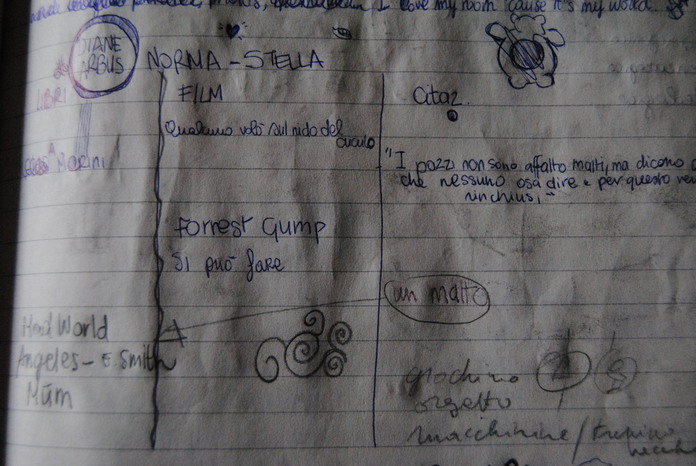 I love my room 'cause it's my world.
DIANE
ARBUS
NORMA - STELLA
LIBRI
FILM
Citaz.
Qualcuno volò sul nido del
cuculo
"I pazzi non sono affatto matti, ma dicono
che nessuno osa dire e per questo
rinchiusi"
Forrest Gump
Si può fare
un matto
World
Angeles - E. Smith
Múm
giochino
oggetto
macchinine / trenino